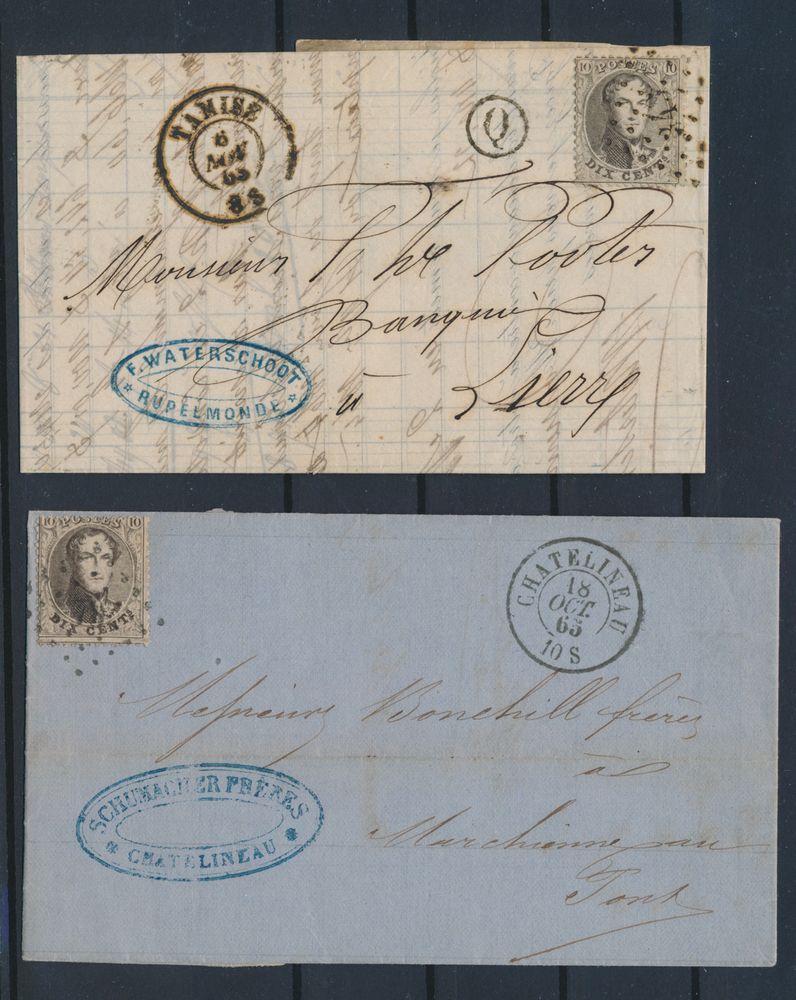 TAMISE
6
NOV
65
8 S
Q
10 POSTES 10
DIX CENTS
Monsieur
Banquier
à Lierre
F. WATERSCHOOT
* RUPELMONDE *
10 POSTES 10
DIX CENTS
CHATELINEAU
18
OCT.
65
10 S
Messieurs Bonehill frères
à
Marchienne au
Pont
SCHUMACHER FRÈRES
* CHATELINEAU *